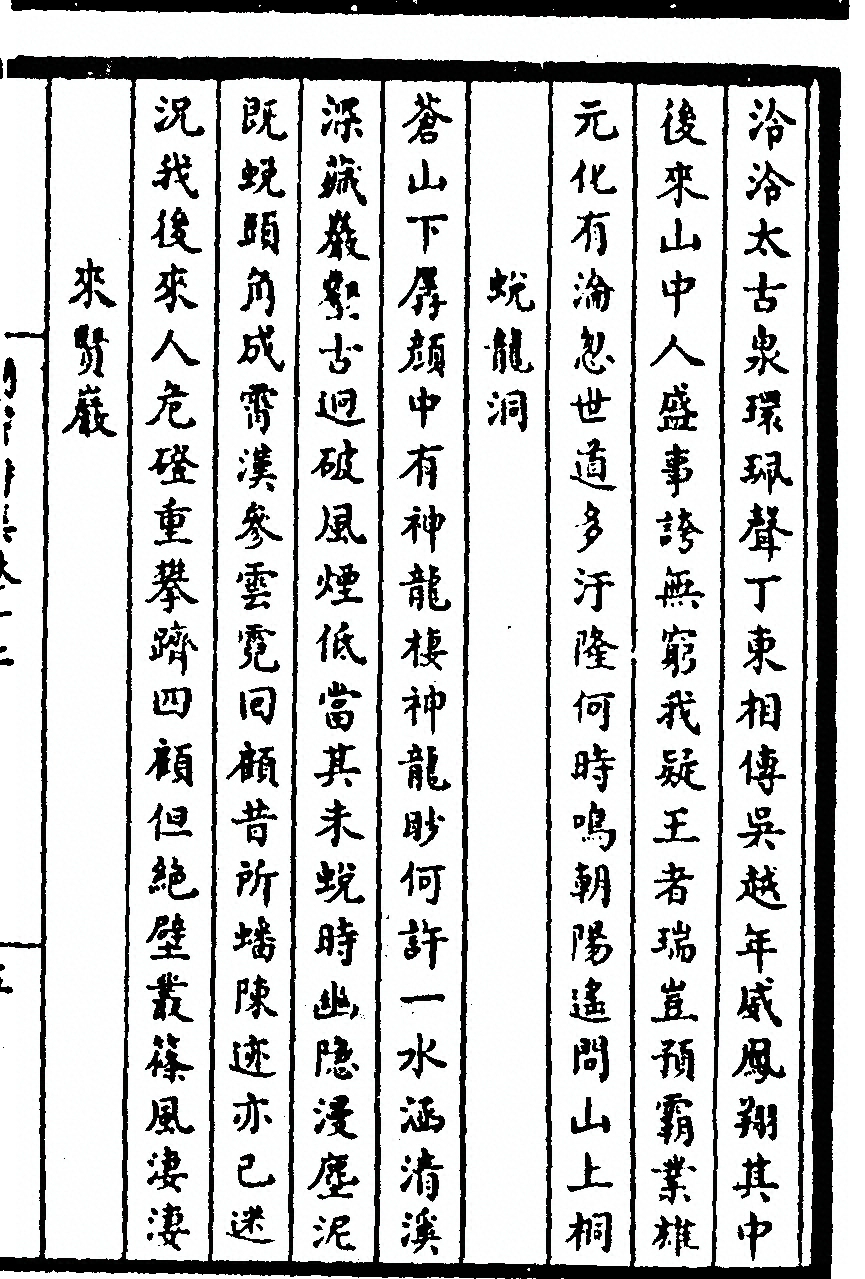 泠泠太古泉環珮聲丁東相傳吳越年威鳳翔其中
後來山中人盛事誇無窮我疑王者瑞豈預霸業雄
元化有淪忽世道多汙隆何時鳴朝陽遙問山上桐
蛻龍洞
蒼山下孱顏中有神龍棲神龍眇何許一水涵清溪
深藏巖壑古迥破風煙低當其未蛻時幽隱浸塵泥
既蛻頭角成霄漢參雲霓回顧昔所蟠陳迹亦已迷
況我後來人危磴重攀躋四顧但絕壁叢篠風淒淒
來賢巖